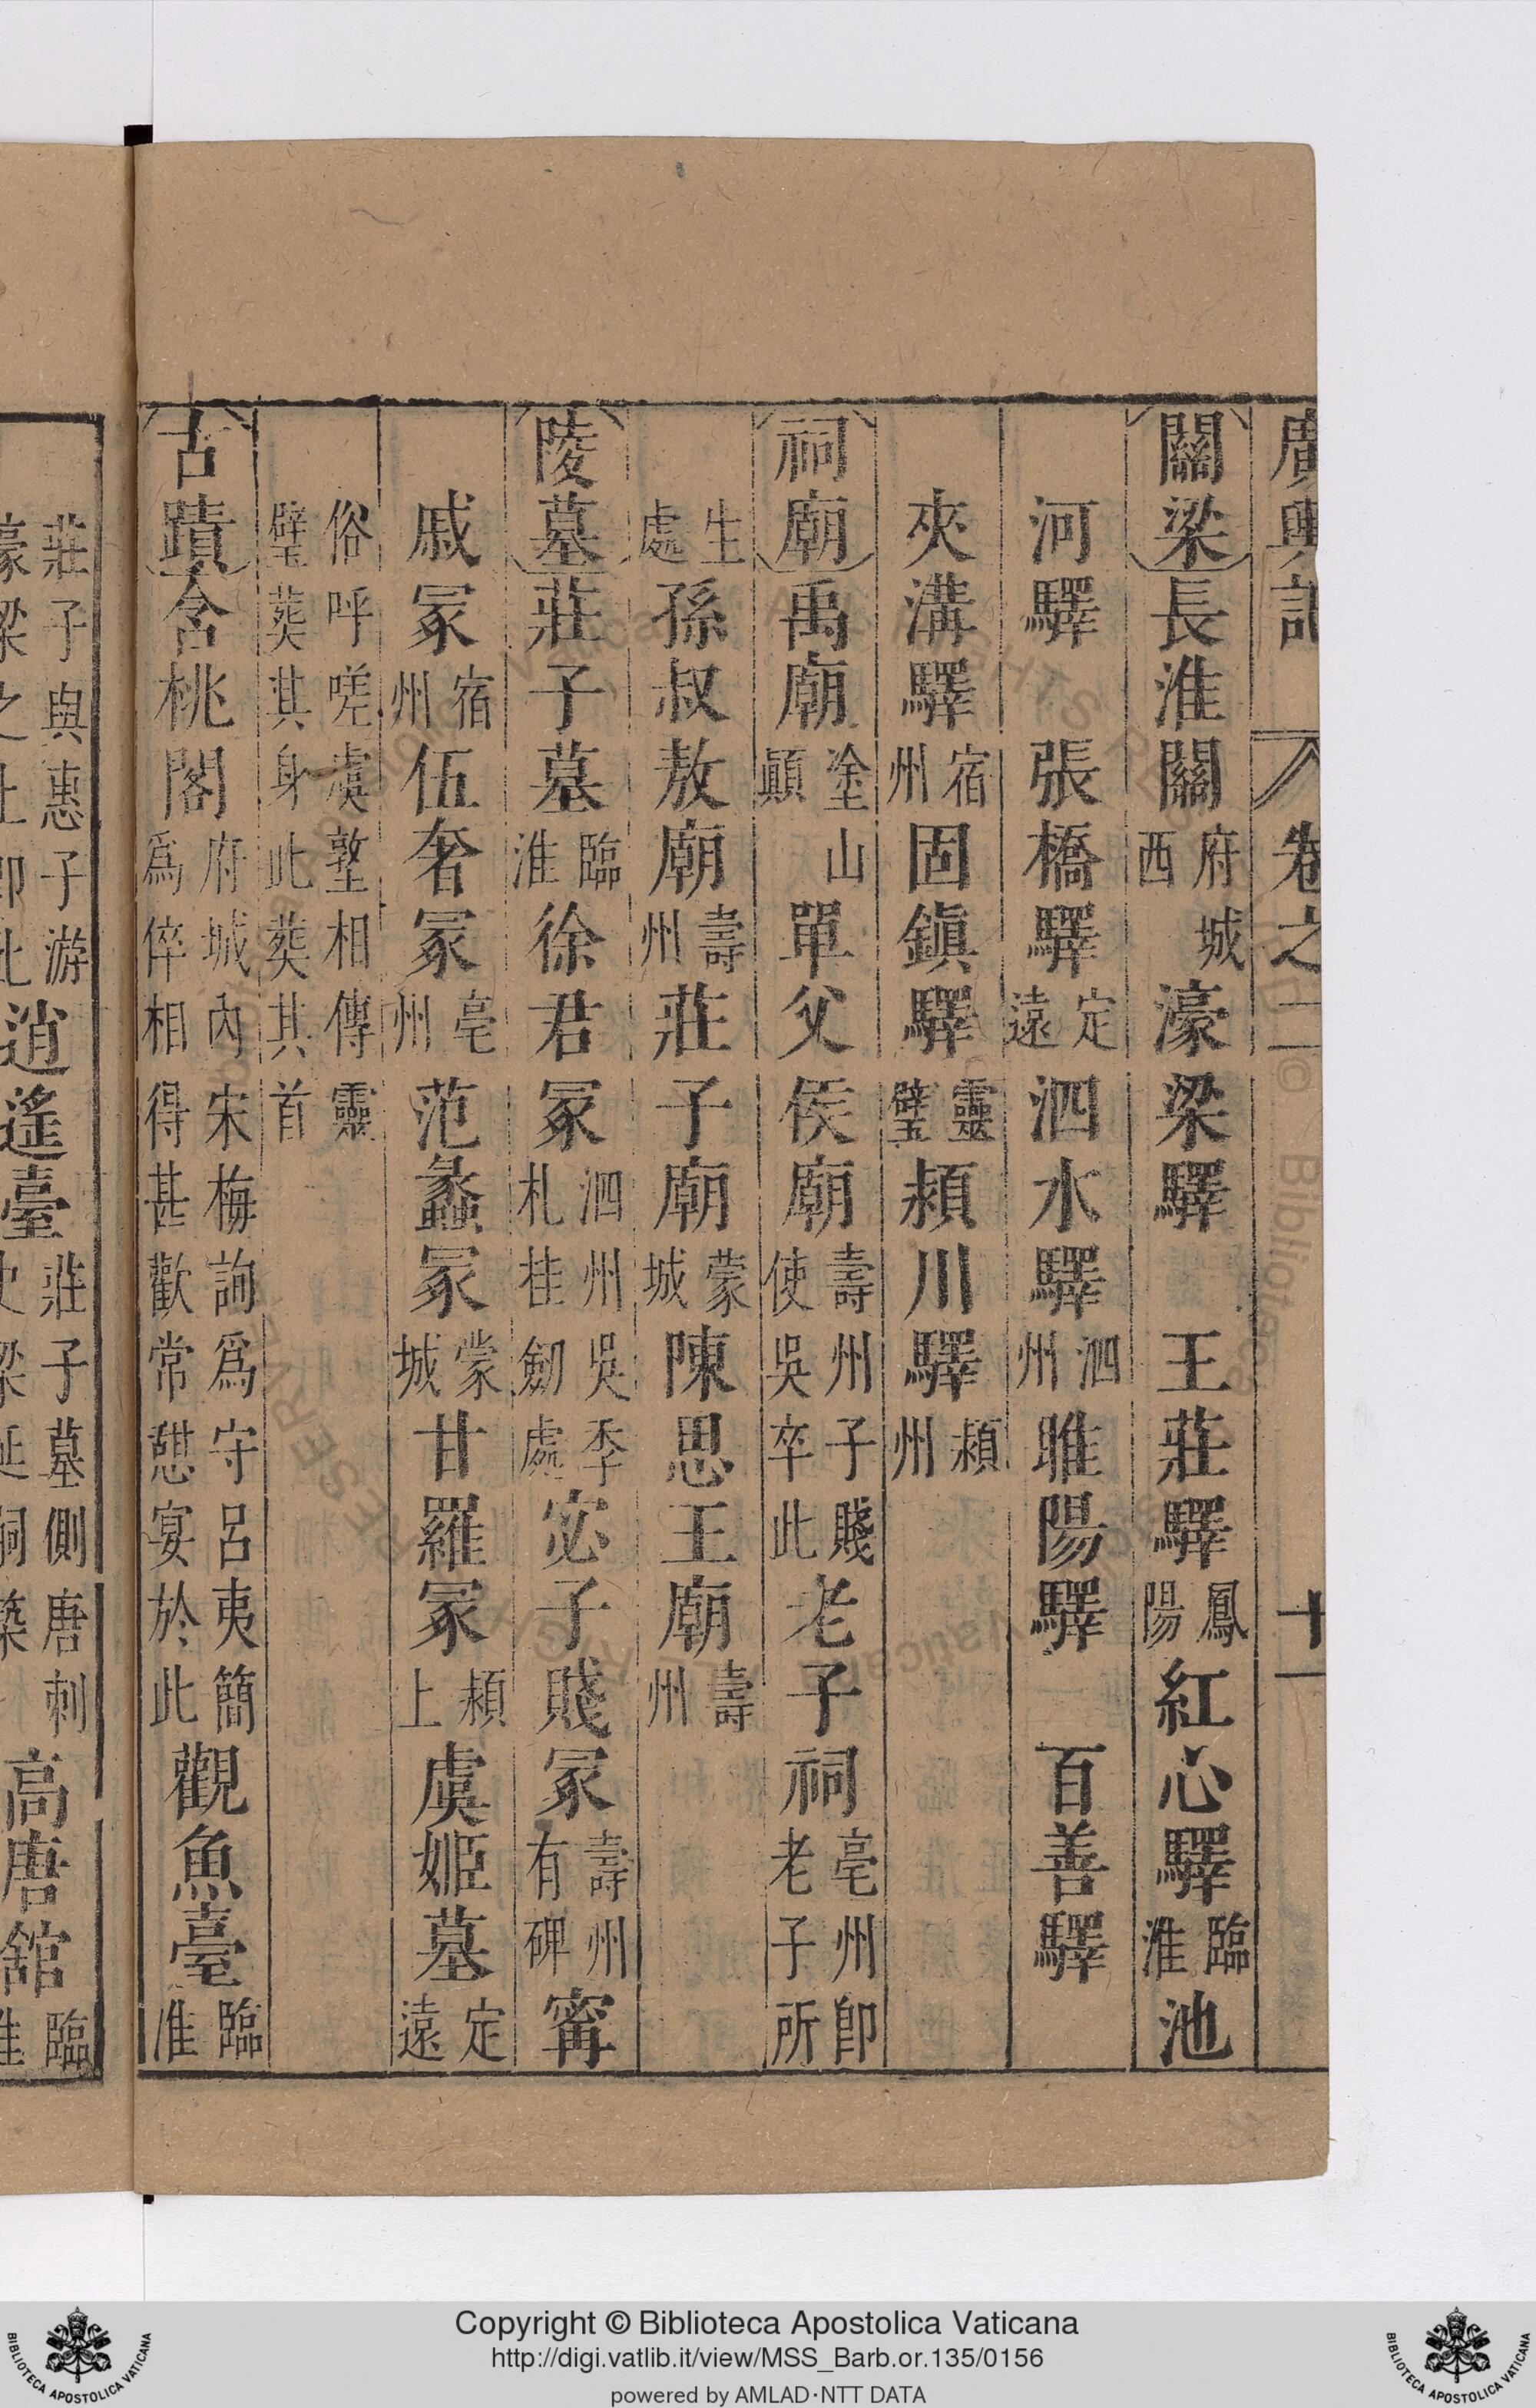 廣輿記 卷之二 十一
關梁長淮關府城西濠梁驛 王莊驛鳳陽紅心驛臨淮池
河驛 張橋驛定遠泗水驛泗州睢陽驛 百善驛
夾溝驛宿州固鎮驛靈璧潁川驛潁州
祠廟禹廟塗山巔單父侯廟壽州子賤使吳卒此老子祠亳州即老子所
生處孫叔敖廟壽州莊子廟蒙城陳思王廟壽州
陵墓莊子墓臨淮徐君冢泗州吳季札挂劒處宓子賤冢壽州有碑甯
戚冢宿州伍奢冢亳州范蠡冢蒙城甘羅冢潁上虞姬墓定遠
俗呼嗟虞墪相傳靈璧葬其身此葬其首
古蹟含桃閣府城內宋梅詢爲守呂夷簡爲倅相得甚歡常憇宴於此觀魚臺臨淮
莊子與惠子游濠梁之上即此逍遙臺莊子墓側唐刺史梁延嗣築高唐舘臨淮
Copyright © Biblioteca Apostolica Vaticana
http://digi.vatlib.it/view/MSS_Barb.or.135/0156
powered by AMLAD·NTT DATA
BIBLIOTECA APOSTOLICA VATICANA
BIBLIOTECA APOSTOLICA VATICANA